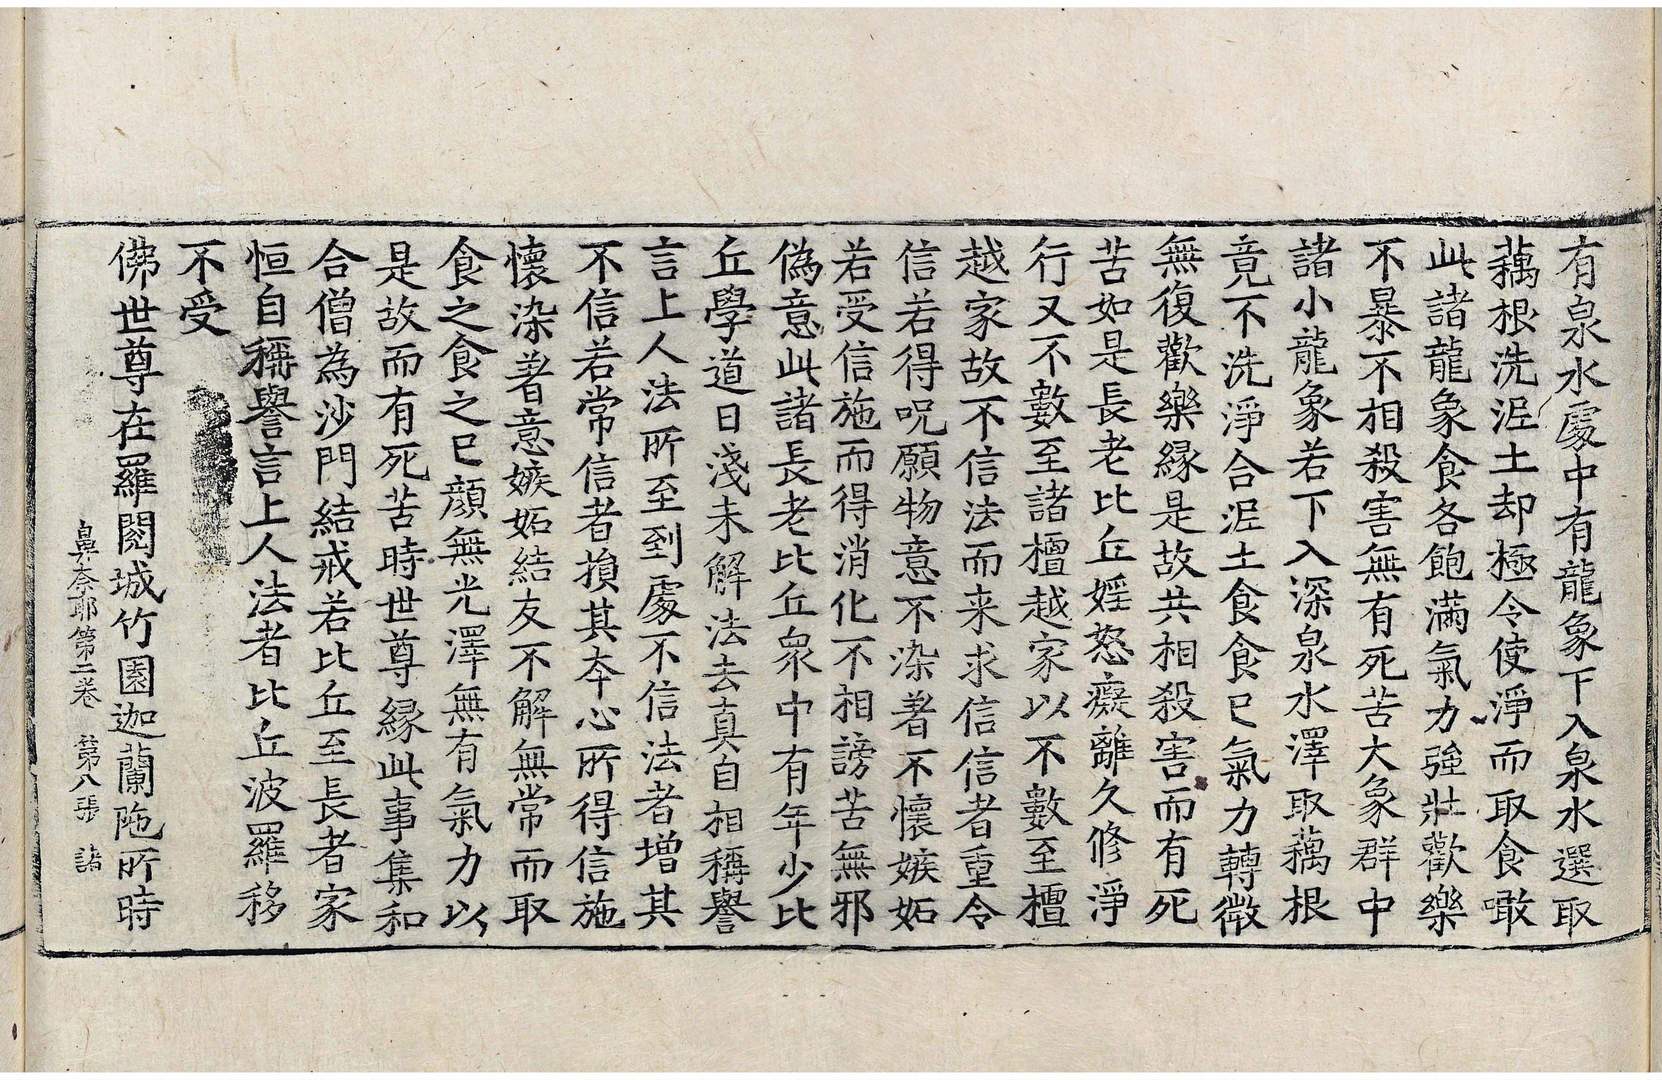 有泉水處中有龍象下入泉水選取
藕根洗泥土却極令使淨而取食噉
此諸龍象食各飽滿氣力強壯歡樂
不暴不相殺害無有死苦大象群中
諸小龍象若下入深泉水澤取藕根
竟不洗淨合泥土食食已氣力轉微
無復歡樂緣是故共相殺害而有死
苦如是長老比丘婬怒癡離久修淨
行又不數至諸檀越家以不數至檀
越家故不信法而来求信信者重令
信若得呪願物意不染著不懷嫉妬
若受信施而得消化不相謗苦無邪
偽意此諸長老比丘衆中有年少比
丘學道日淺未解法去真自相稱譽
言上人法所至到處不信法者增其
不信若常信者損其夲心所得信施
懷染著意嫉妬結友不解無常而取
食之食之已顔無光澤無有氣力以
是故而有死苦時世尊緣此事集和
合僧為沙門結戒若比丘至長者家
恒自稱譽言上人法者比丘波羅移
不受
佛世尊在羅閱城竹園迦蘭陁所時
鼻奈耶第二卷 第八張 諸